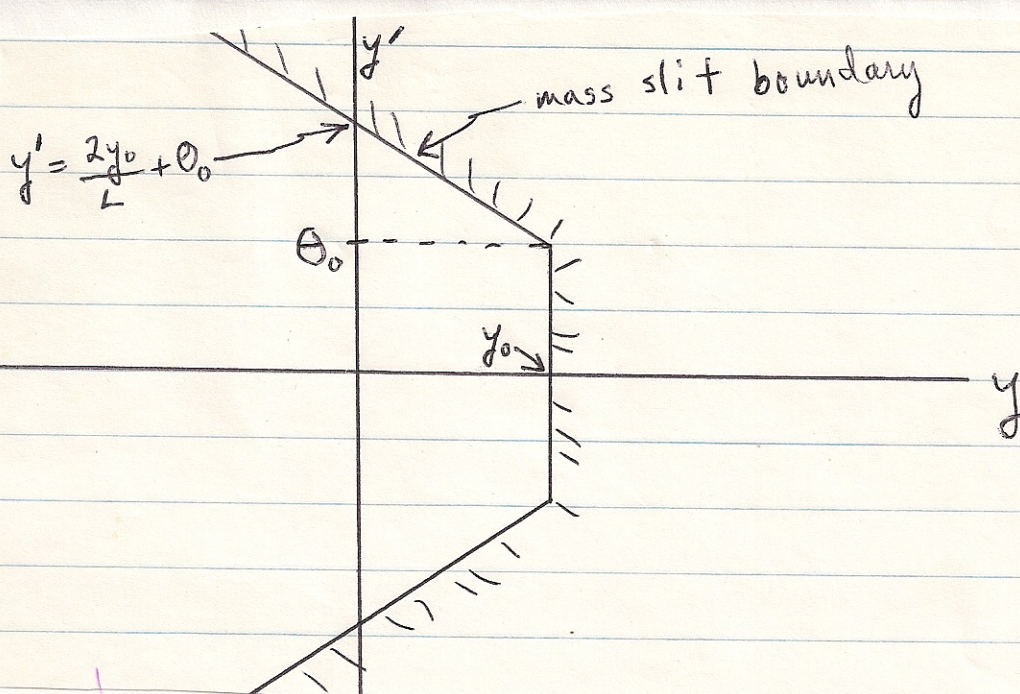 y'
mass slit boundary
y' = 2y₀/L + θ₀
θ₀
y₀
y